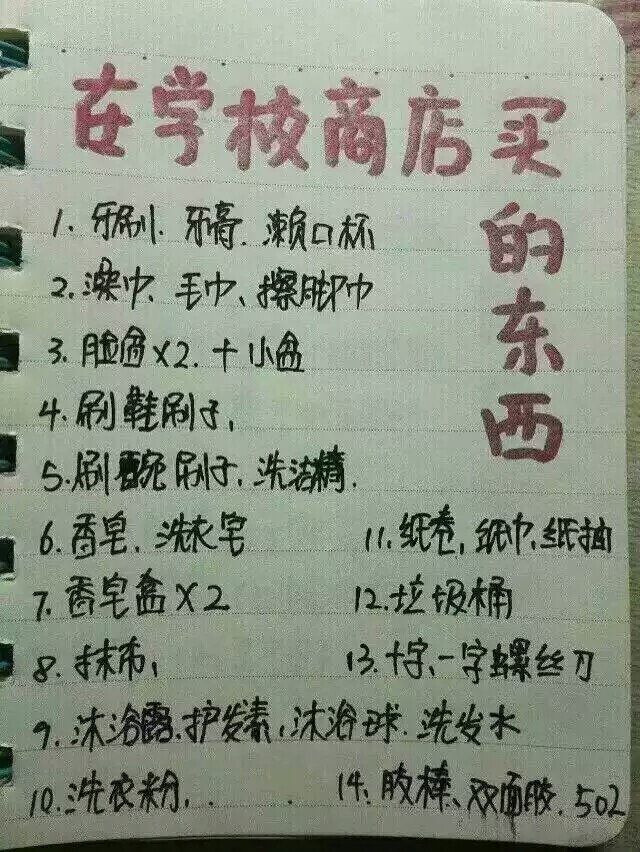 在学校商店买
的东西
1. 牙刷、牙膏、漱口杯
2. 澡巾、毛巾、擦脚巾
3. 脸盆×2. 十小盆
4. 刷鞋刷子,
5. 刷碗刷子、洗洁精.
6. 香皂、洗衣皂
7. 香皂盒×2
8. 抹布,
9. 沐浴露、护发素,沐浴球. 洗发水
10. 洗衣粉,.
11. 纸卷,纸巾,纸抽
12. 垃圾桶
13. 十字、一字螺丝刀
14. 胶棒、双面胶. 502